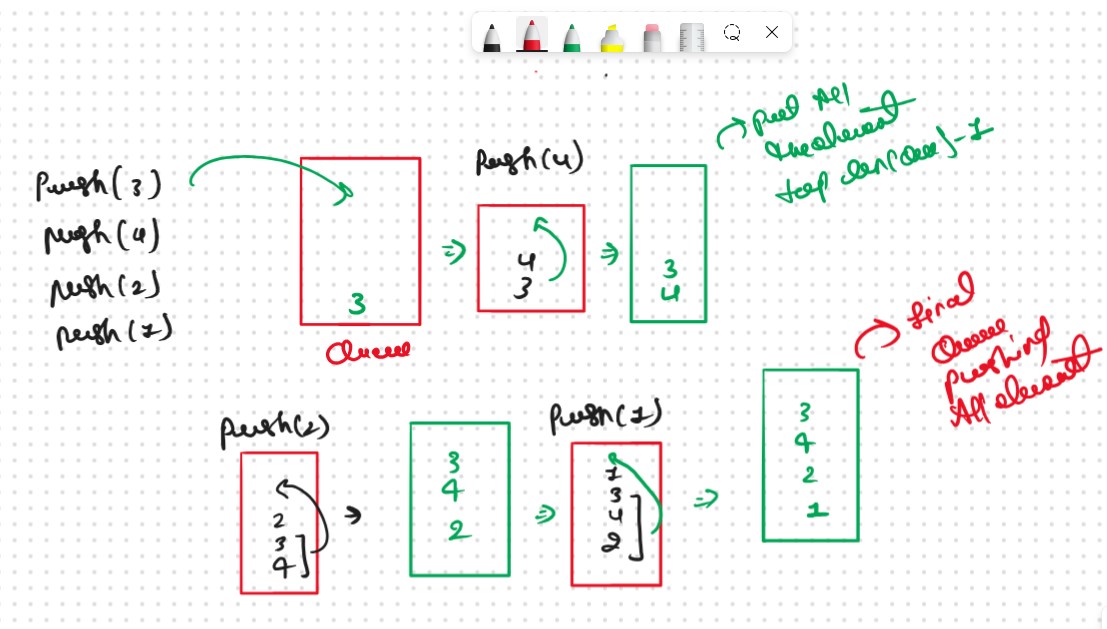 push(3)
push(4)
push(2)
push(1)
3
Queue
push(4)
4
3
3
4
put All
the element
top len(Que)-1
push(2)
2
3
4
3
4
2
push(1)
1
3
4
2
3
4
2
1
final
Queue
pushing
All element